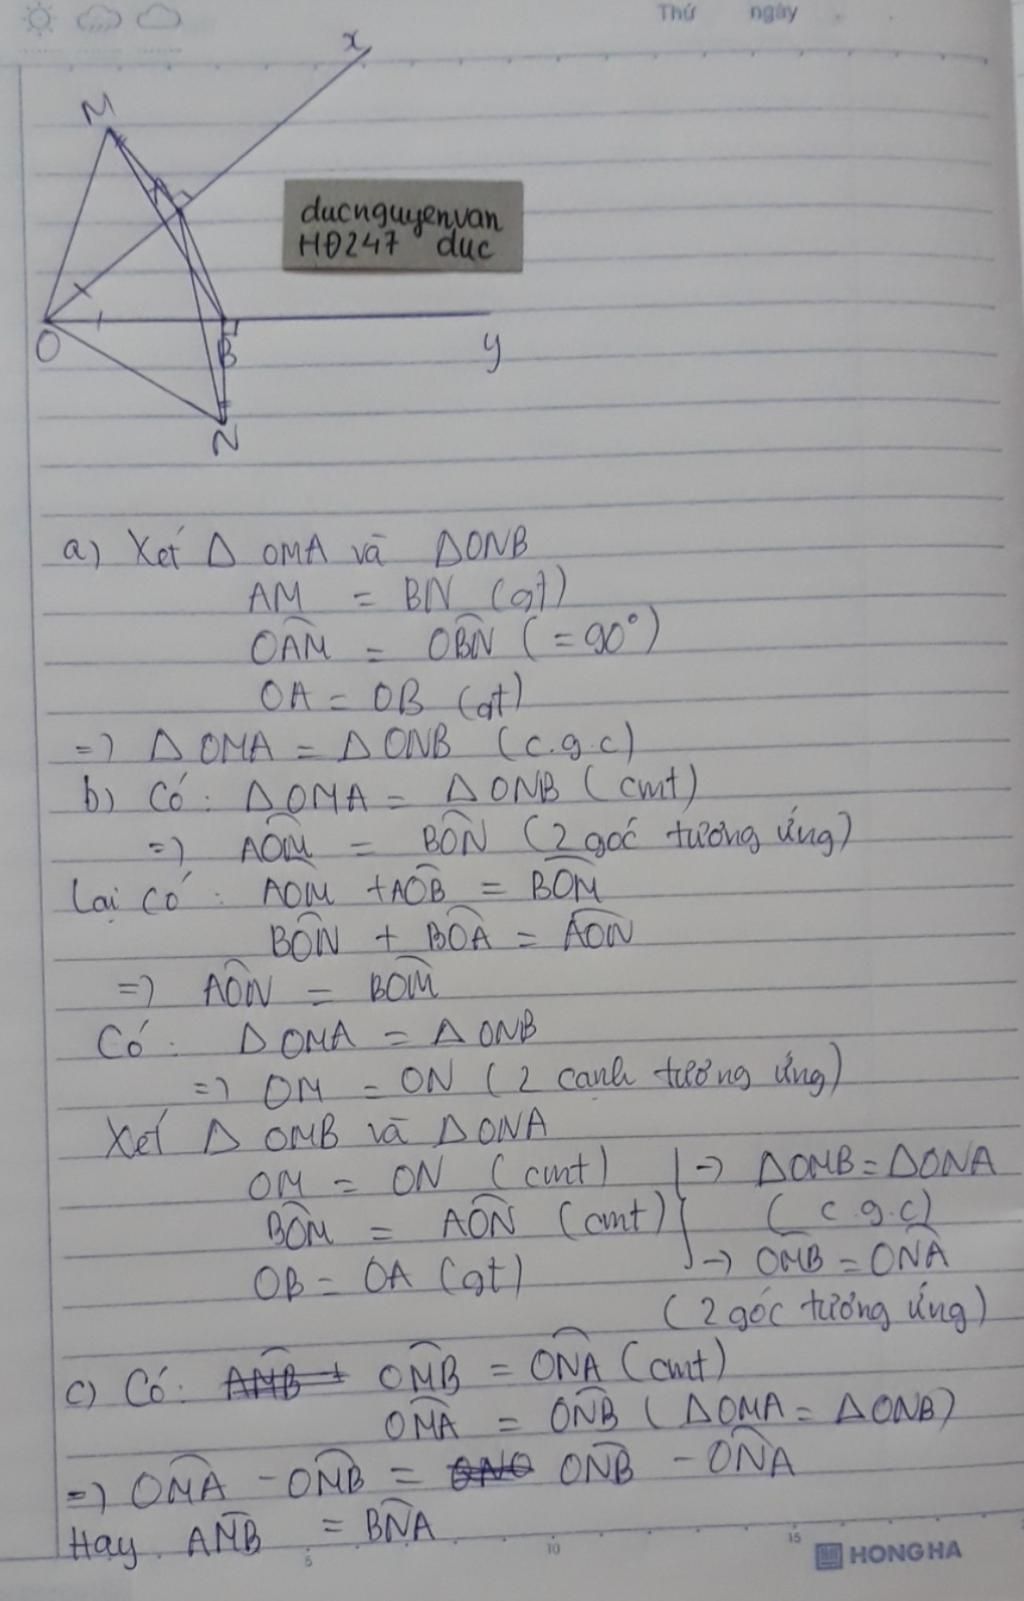 Thứ ngày
x
M
A
ducnguyenvan
HĐ247 duc
O
B
y
N
a) Xét Δ OMA và ΔONB
AM = BN (gt)
OAM = OBN (= 90°)
OA = OB (gt)
=> Δ OMA = Δ ONB (c.g.c)
b) Có : Δ OMA = Δ ONB (cmt)
=> AOM = BON (2 góc tương ứng)
Lại có : AOM + AOB = BOM
BON + BOA = AON
=> AON = BOM
Có : Δ OMA = Δ ONB
=> OM = ON (2 cạnh tương ứng)
Xét Δ OMB và Δ ONA
OM = ON (cmt) | -> ΔOMB = ΔONA
BOM = AON (cmt) (c.g.c)
OB = OA (gt) -> OMB = ONA
(2 góc tương ứng)
c) Có : AMB + OMB = ONA (cmt)
OMA = ONB (ΔOMA = ΔONB)
=> OMA - OMB = ONB - ONA
Hay AMB = BNA
5 10 15
HONG HA